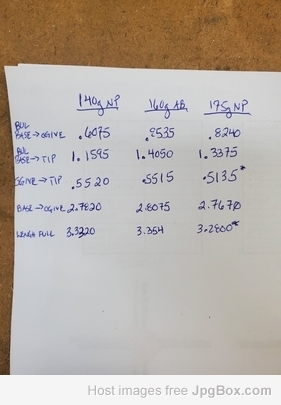 140g NP 160g AB 175g NP
BUL
BASE → OGIVE .6075 .8535 .8240
BUL
BASE → TIP 1.1595 1.4050 1.3375
OGIVE → TIP .5520 .5515 .5135*
BASE → OGIVE 2.7820 2.8075 2.7670
LENGH FULL 3.3220 3.354 3.2800*
Host images free JpgBox.com